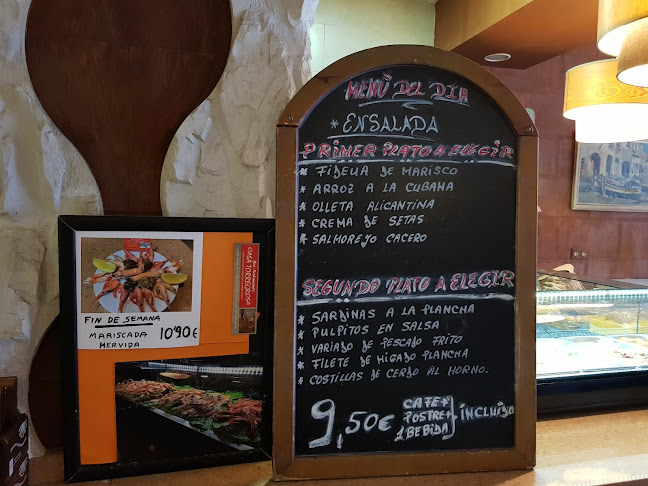 FIN DE SEMANA
MARISCADA 10'90€
HERVIDA
CASA TORREGROSA
MENÚ DEL DÍA
* ENSALADA
PRIMER PLATO A ELEGIR
* FIDEUA DE MARISCO
* ARROZ A LA CUBANA
* OLLETA ALICANTINA
* CREMA DE SETAS
* SALMOREJO CACERO
SEGUNDO PLATO A ELEGIR
* SARDINAS A LA PLANCHA
* PULPITOS EN SALSA
* VARIADO DE PESCADO FRITO
* FILETE DE HIGADO PLANCHA
* COSTILLAS DE CERDO AL HORNO.
9,50€ CAFE+ POSTRE+ 1 BEBIDA } INCLUIDO